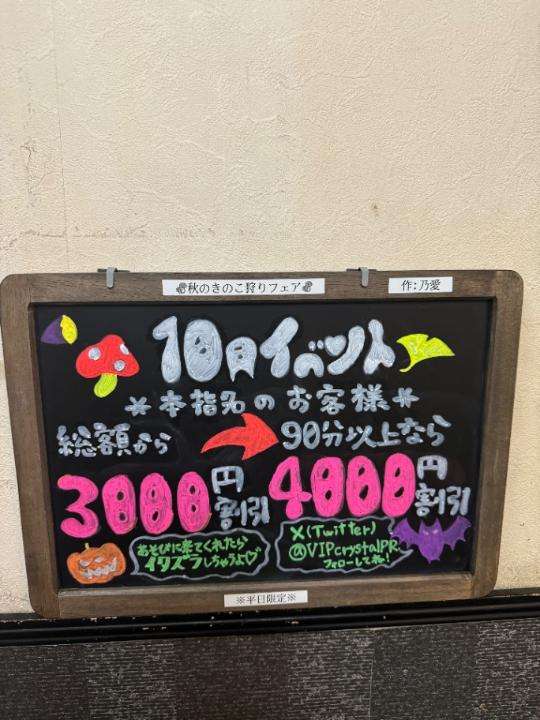 秋のきのこ狩りフェア
作:乃愛
10月イベント
*本指名のお客様*
総額から
3000円割引
90分以上なら
4000円割引
あそびに来てくれたら
イタズラしちゃうよ♡
X(Twitter)
@VIPcrystalPR
フォローしてね!
※平日限定※